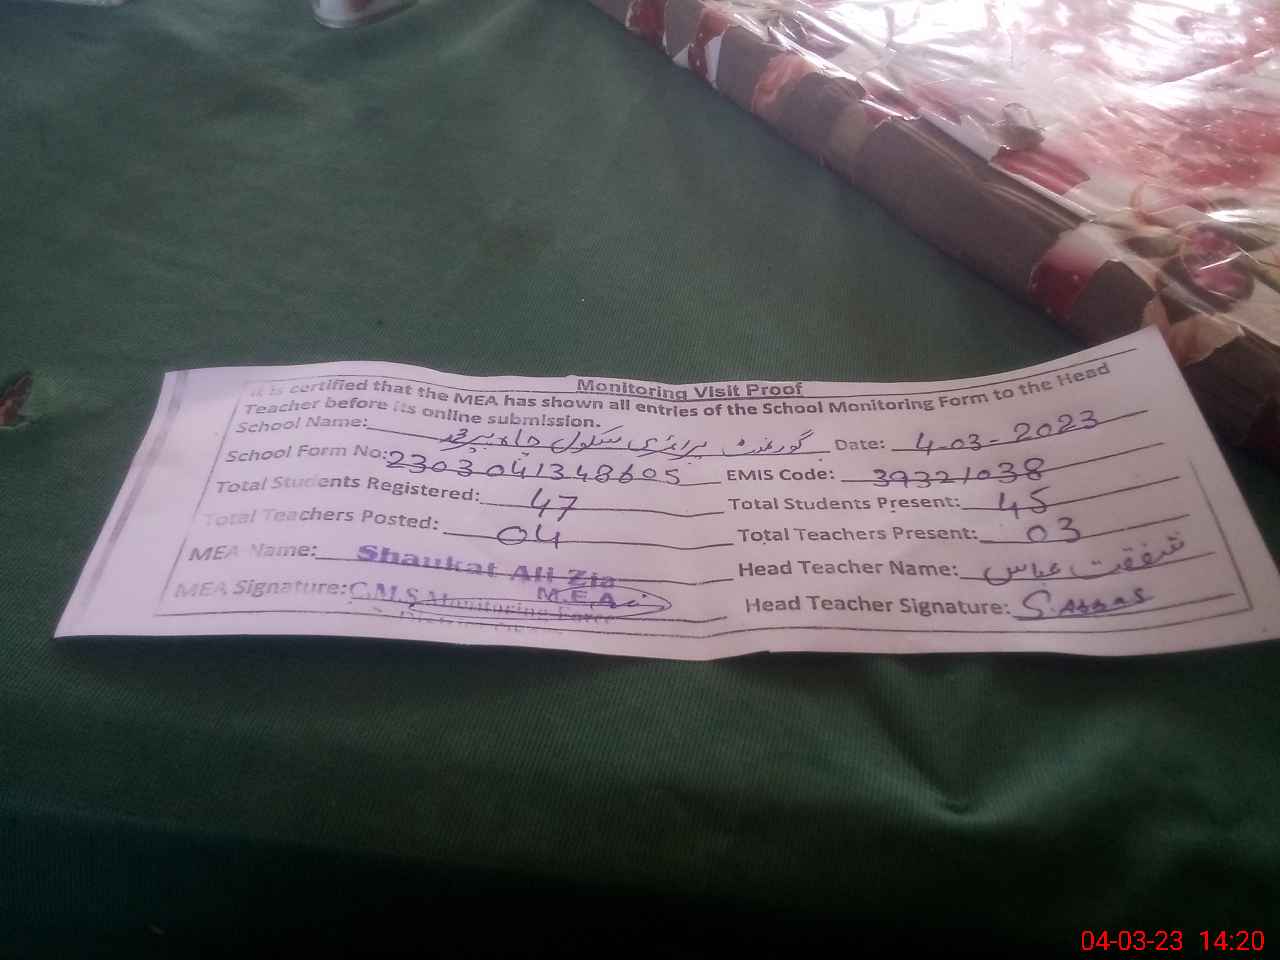 Monitoring Visit Proof
It is certified that the MEA has shown all entries of the School Monitoring Form to the Head
Teacher before its online submission.
School Name: گورنمنٹ پرائمری سکول چاہ Date: 4-03-2023
School Form No: 2303041348605 EMIS Code: 39321038
Total Students Registered: 47 Total Students Present: 45
Total Teachers Posted: 04 Total Teachers Present: 03
MEA Name: Shaukat Ali Zia Head Teacher Name: شفقت عباس
M.E.A
MEA Signature: C.M.S Monitoring Force Head Teacher Signature: S. Abbas
04-03-23 14:20